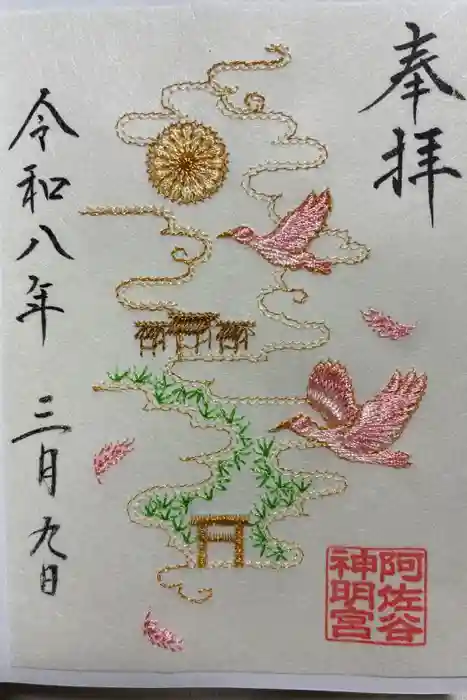 奉拝
令和八年 三月九日
阿佐谷
神明宮